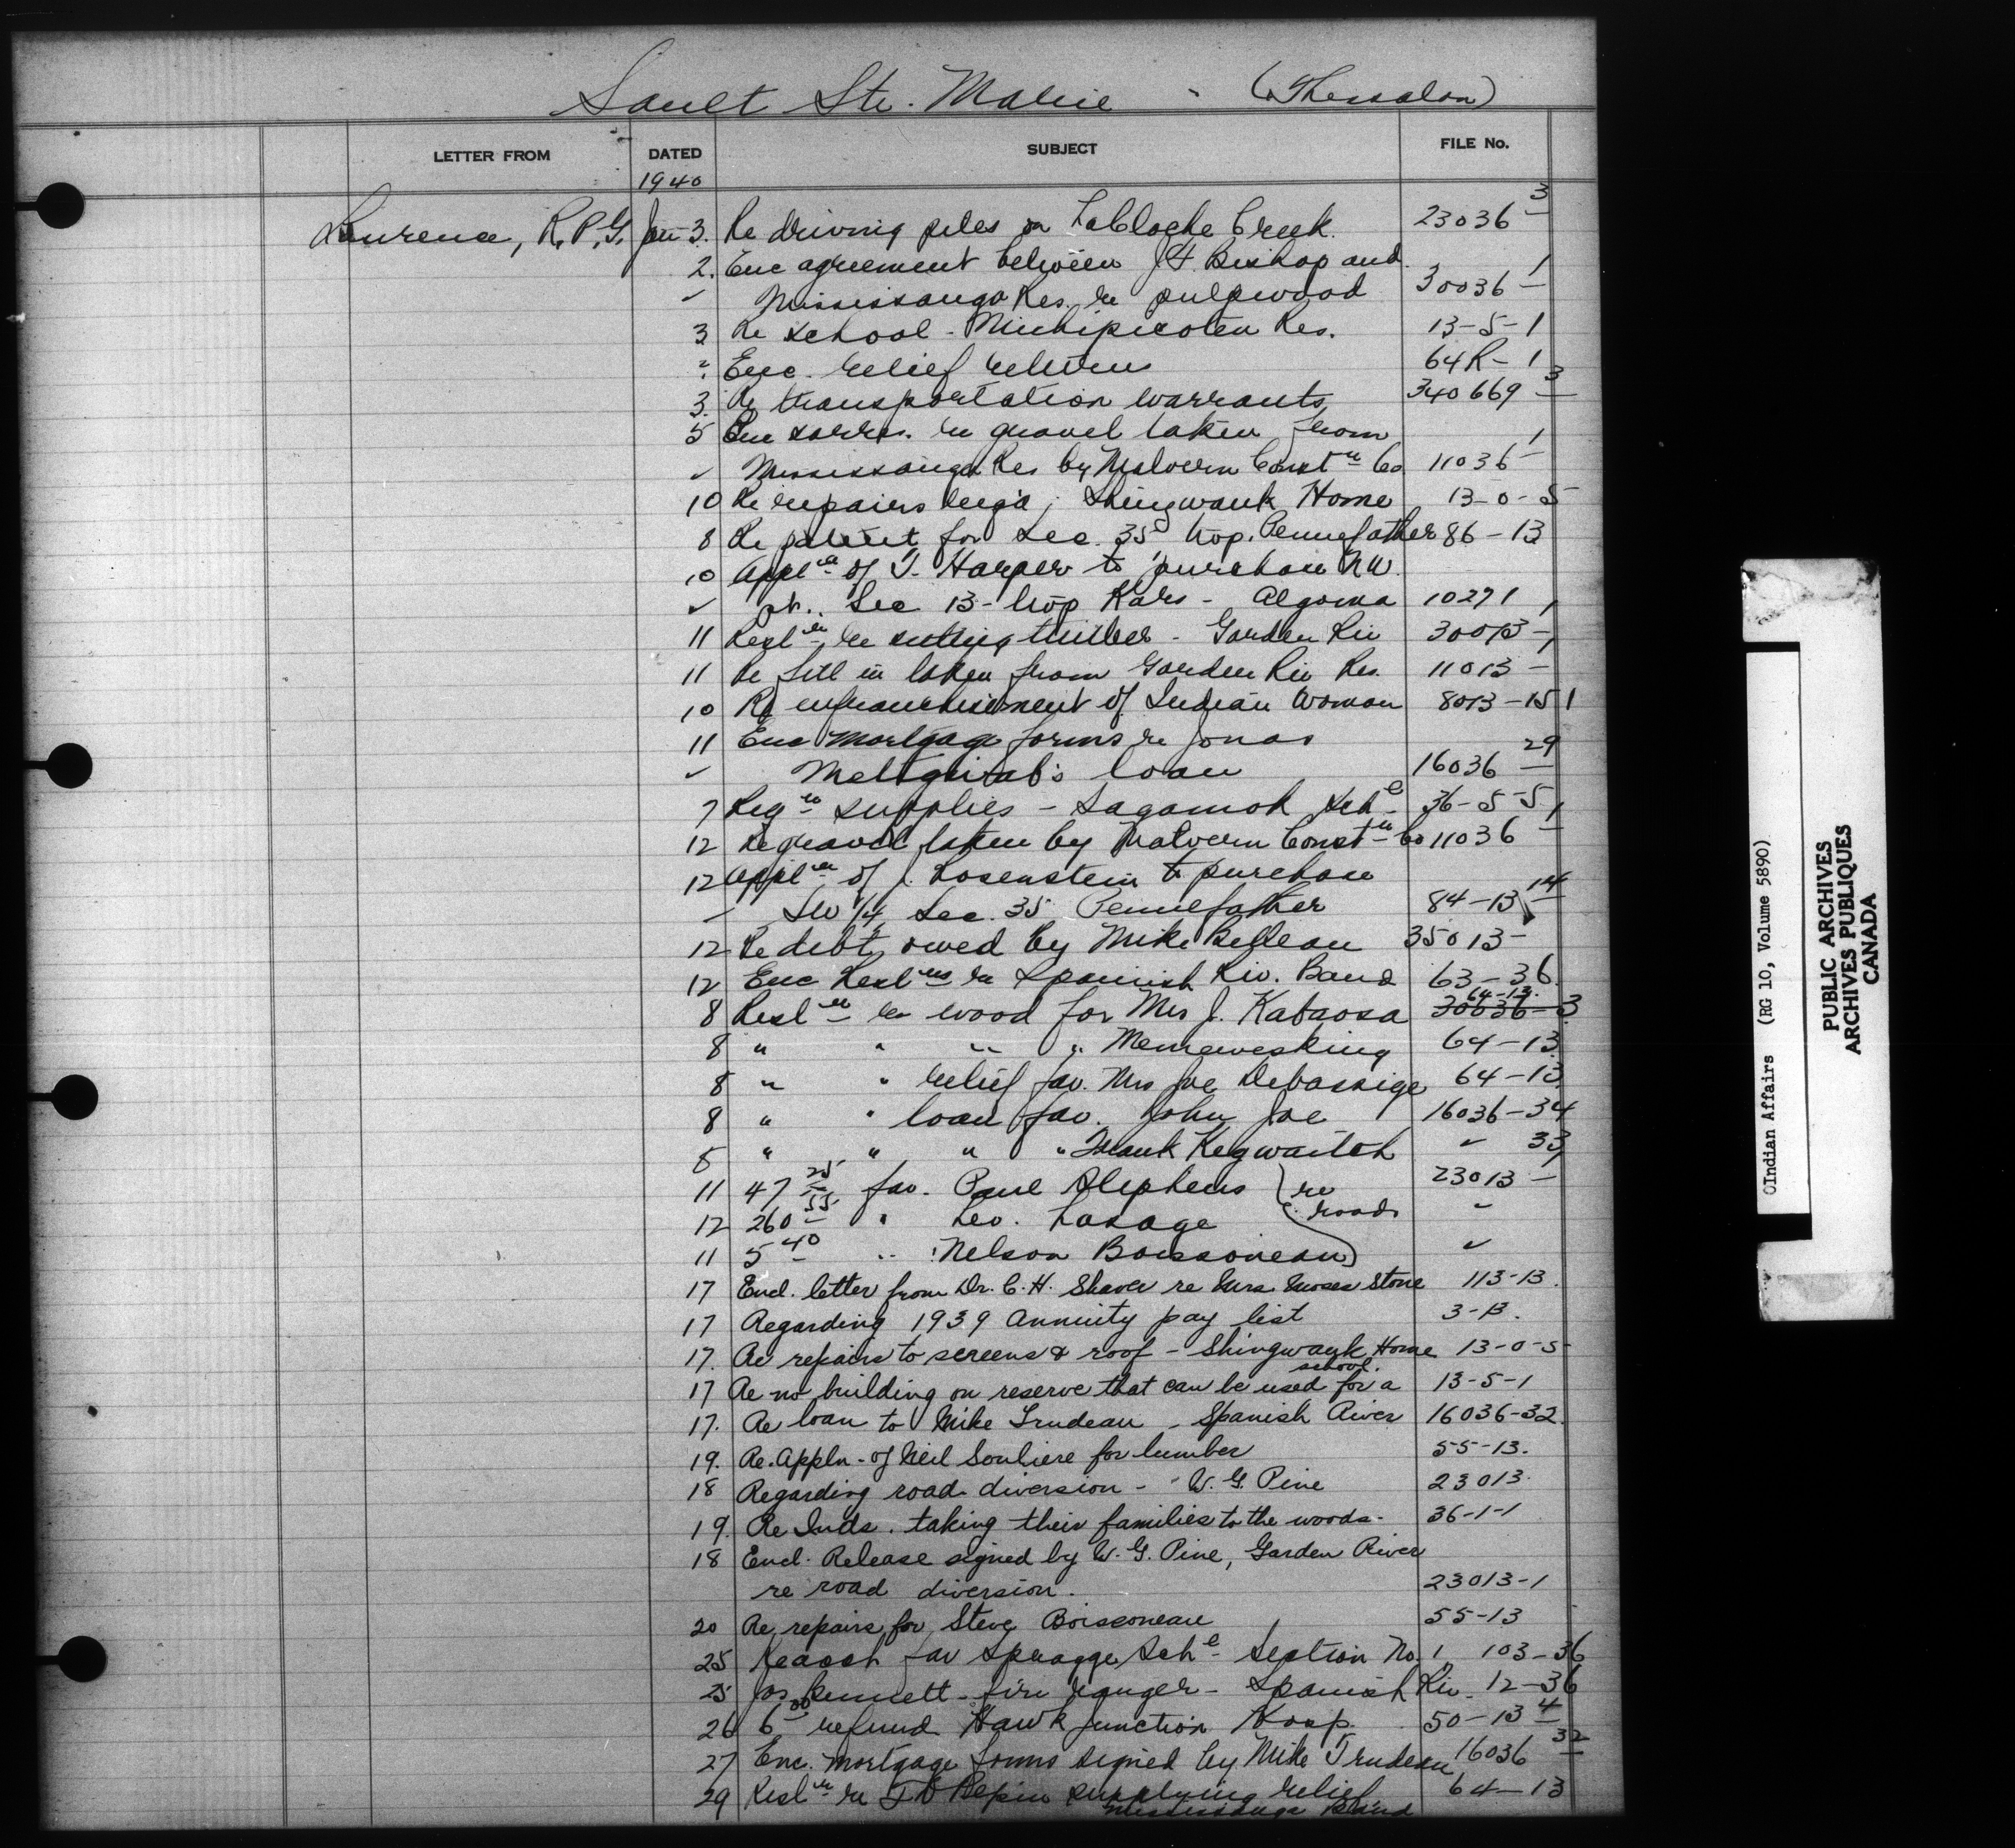 Sault Ste. Marie - (Thessalon)
LETTER FROM DATED SUBJECT FILE No.
1940
Lawrence, R.P.G. Jan 3. Re driving piles in LaCloche Creek. 23036-3
2. Enc agreement between J.H. Bishop and
✓ Mississauga Res. re pulpwood 30036-1
3 Re school - Michipicoten Res. 13-5-1
Enc. relief returns 64R-1
3. Re transportation warrants 340669-3
5 Enc corres. re gravel taken from
✓ Mississauga Res by Malvern Constn Co 11036-1
10 Re repairs req'd, Shingwauk Home 13-0-5
8 Re patent for Sec. 35 twp. Pennefather 86-13
10 Appln of T. Harper to purchase NW
✓ qr. Sec 13 - twp Kars - Algoma 10271
11 Resln re cutting timber - Garden Riv 30013-1
11 Re fill in taken from Garden Riv Res. 11013-1
10 Re enfranchisement of Indian Woman 8013-151
11 Enc mortgage forms re Jonas
✓ loan 16036-29
7 Reqn supplies - Sagamok Schl 36-5-5
12 Re gravel taken by Malvern Constn Co 11036-1
12 Appln of J. Rosenstein to purchase
SW 1/4 Sec. 35 Pennefather 84-13-14
12 Re debt owed by Mike Belleau 35013-
12 EncReslns re Spanish Riv. Band 63-36
64-13.
8 Resln re wood for Mrs J. Kabaosa 30036-3
8 " " " " Memewesking 64-13
8 " " relief fav. Mrs Joe Debassige 64-13
8 " " loan fav. John Joe 16036-34
8 " " " " Frank Kegwaitch ✓ 33
11 47 25 fav. Paul Stephens } re 23013-1
12 260 55 " Leo. Lasage roads "
11 5 40 " Nelson Boissoneau ✓
17 Encl. letter from Dr. C.H. Shaver re Mrs. Moses Stone 113-13.
17 Regarding 1939 Annuity pay list 3-13.
17. Re repairs to screens & roof - Shingwauk Home 13-0-5
17 Re no building on reserve that can be used for a school. 13-5-1
17. Re loan to Mike Trudeau - Spanish River 16036-32.
19. Re. Appln. of Neil Souliere for lumber 55-13.
18 Regarding road diversion - W.G. Pine 23013.
19. Re Inds. taking their families to the woods. 36-1-1
18 Encl. Release signed by W.G. Pine, Garden River
re road diversion. 23013-1
20 Re repairs for Steve Boissoneau 55-13
25 fav Spragge Schl - Section No. 1 103-36
25 Jos Bennett - fire ranger - Spanish Riv. 12-36
26 6 00 refund Hawk Junction Hosp. 50-13-4
27 Enc. mortgage forms signed by Mike Trudeau 16036-32
29 Resln re supplying relief 64-13
Mississauga Band
©Indian Affairs (RG 10, Volume 5890)
PUBLIC ARCHIVES
ARCHIVES PUBLIQUES
CANADA